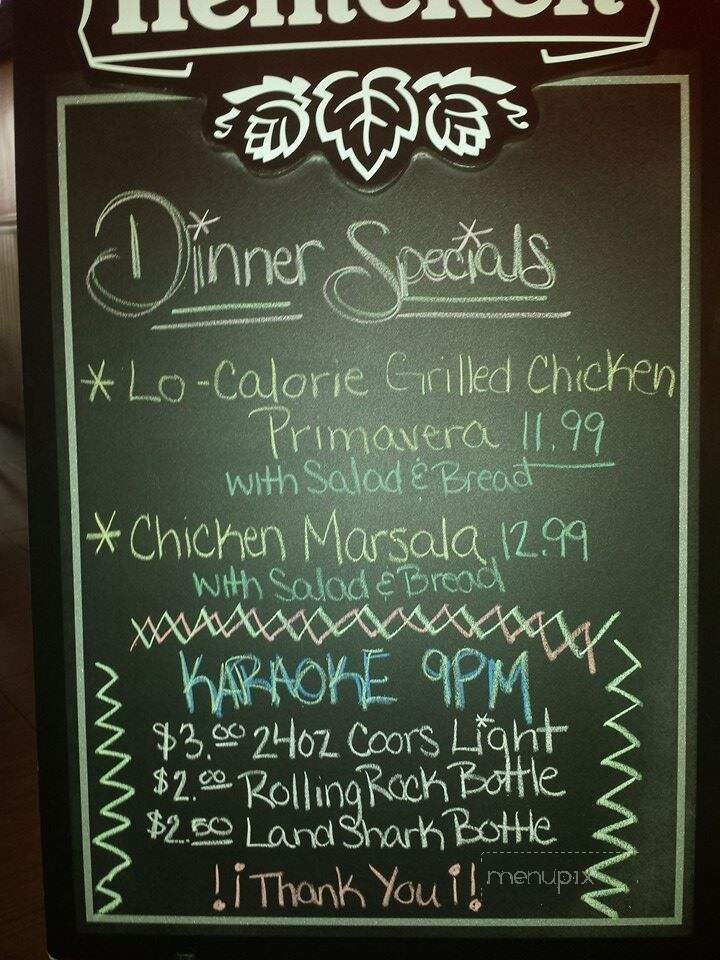 Heineken
Dinner Specials
* Lo-Calorie Grilled Chicken
Primavera 11.99
with Salad & Bread
* Chicken Marsala 12.99
with Salad & Bread
KARAOKE 9PM
$3.00 24oz Coors Light
$2.00 Rolling Rock Bottle
$2.50 Land Shark Bottle
!¡Thank You¡!
menupix